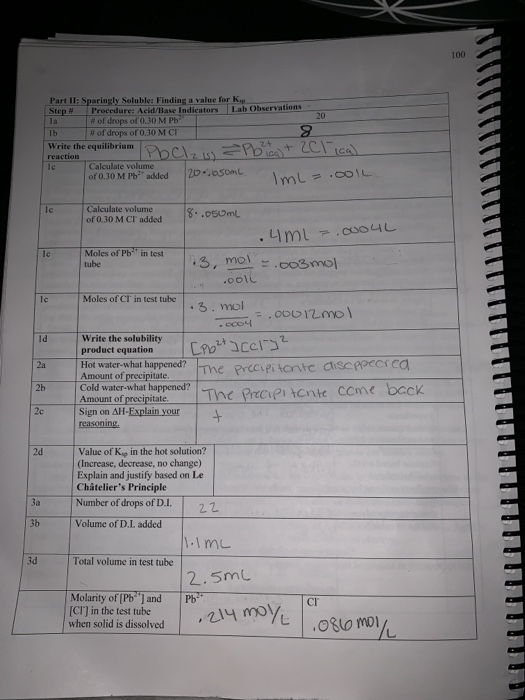 100
Part II: Sparingly Soluble: Finding a value for Ksp
Step # Procedure: Acid/Base Indicators Lab Observations
1a # of drops of 0.30 M Pb2+ 20
1b # of drops of 0.30 M Cl- 8
Write the equilibrium reaction PbCl2 (s) ⇌ Pb2+(aq) + 2Cl-(aq)
1c Calculate volume
of 0.30 M Pb2+ added 20·.050mL 1mL = .001L
1c Calculate volume
of 0.30 M Cl- added 8·.050mL
.4ml = .0004L
1c Moles of Pb2+ in test
tube .3, mol/.001L = .003mol
1c Moles of Cl- in test tube .3. mol/.0004 = .00012mol
1d Write the solubility
product equation [Pb2+][Cl-]2
2a Hot water-what happened?
Amount of precipitate. The precipitante disappeared
2b Cold water-what happened?
Amount of precipitate. The Precipitante came back
2c Sign on ΔH-Explain your
reasoning. +
2d Value of Ksp in the hot solution?
(Increase, decrease, no change)
Explain and justify based on Le
Châtelier's Principle
3a Number of drops of D.I. 22
3b Volume of D.I. added
1.1mL
3d Total volume in test tube
2.5mL
Molarity of [Pb2+] and
[Cl-] in the test tube
when solid is dissolved
Pb2+
.214 mol/L
Cl-
.086 mol/L